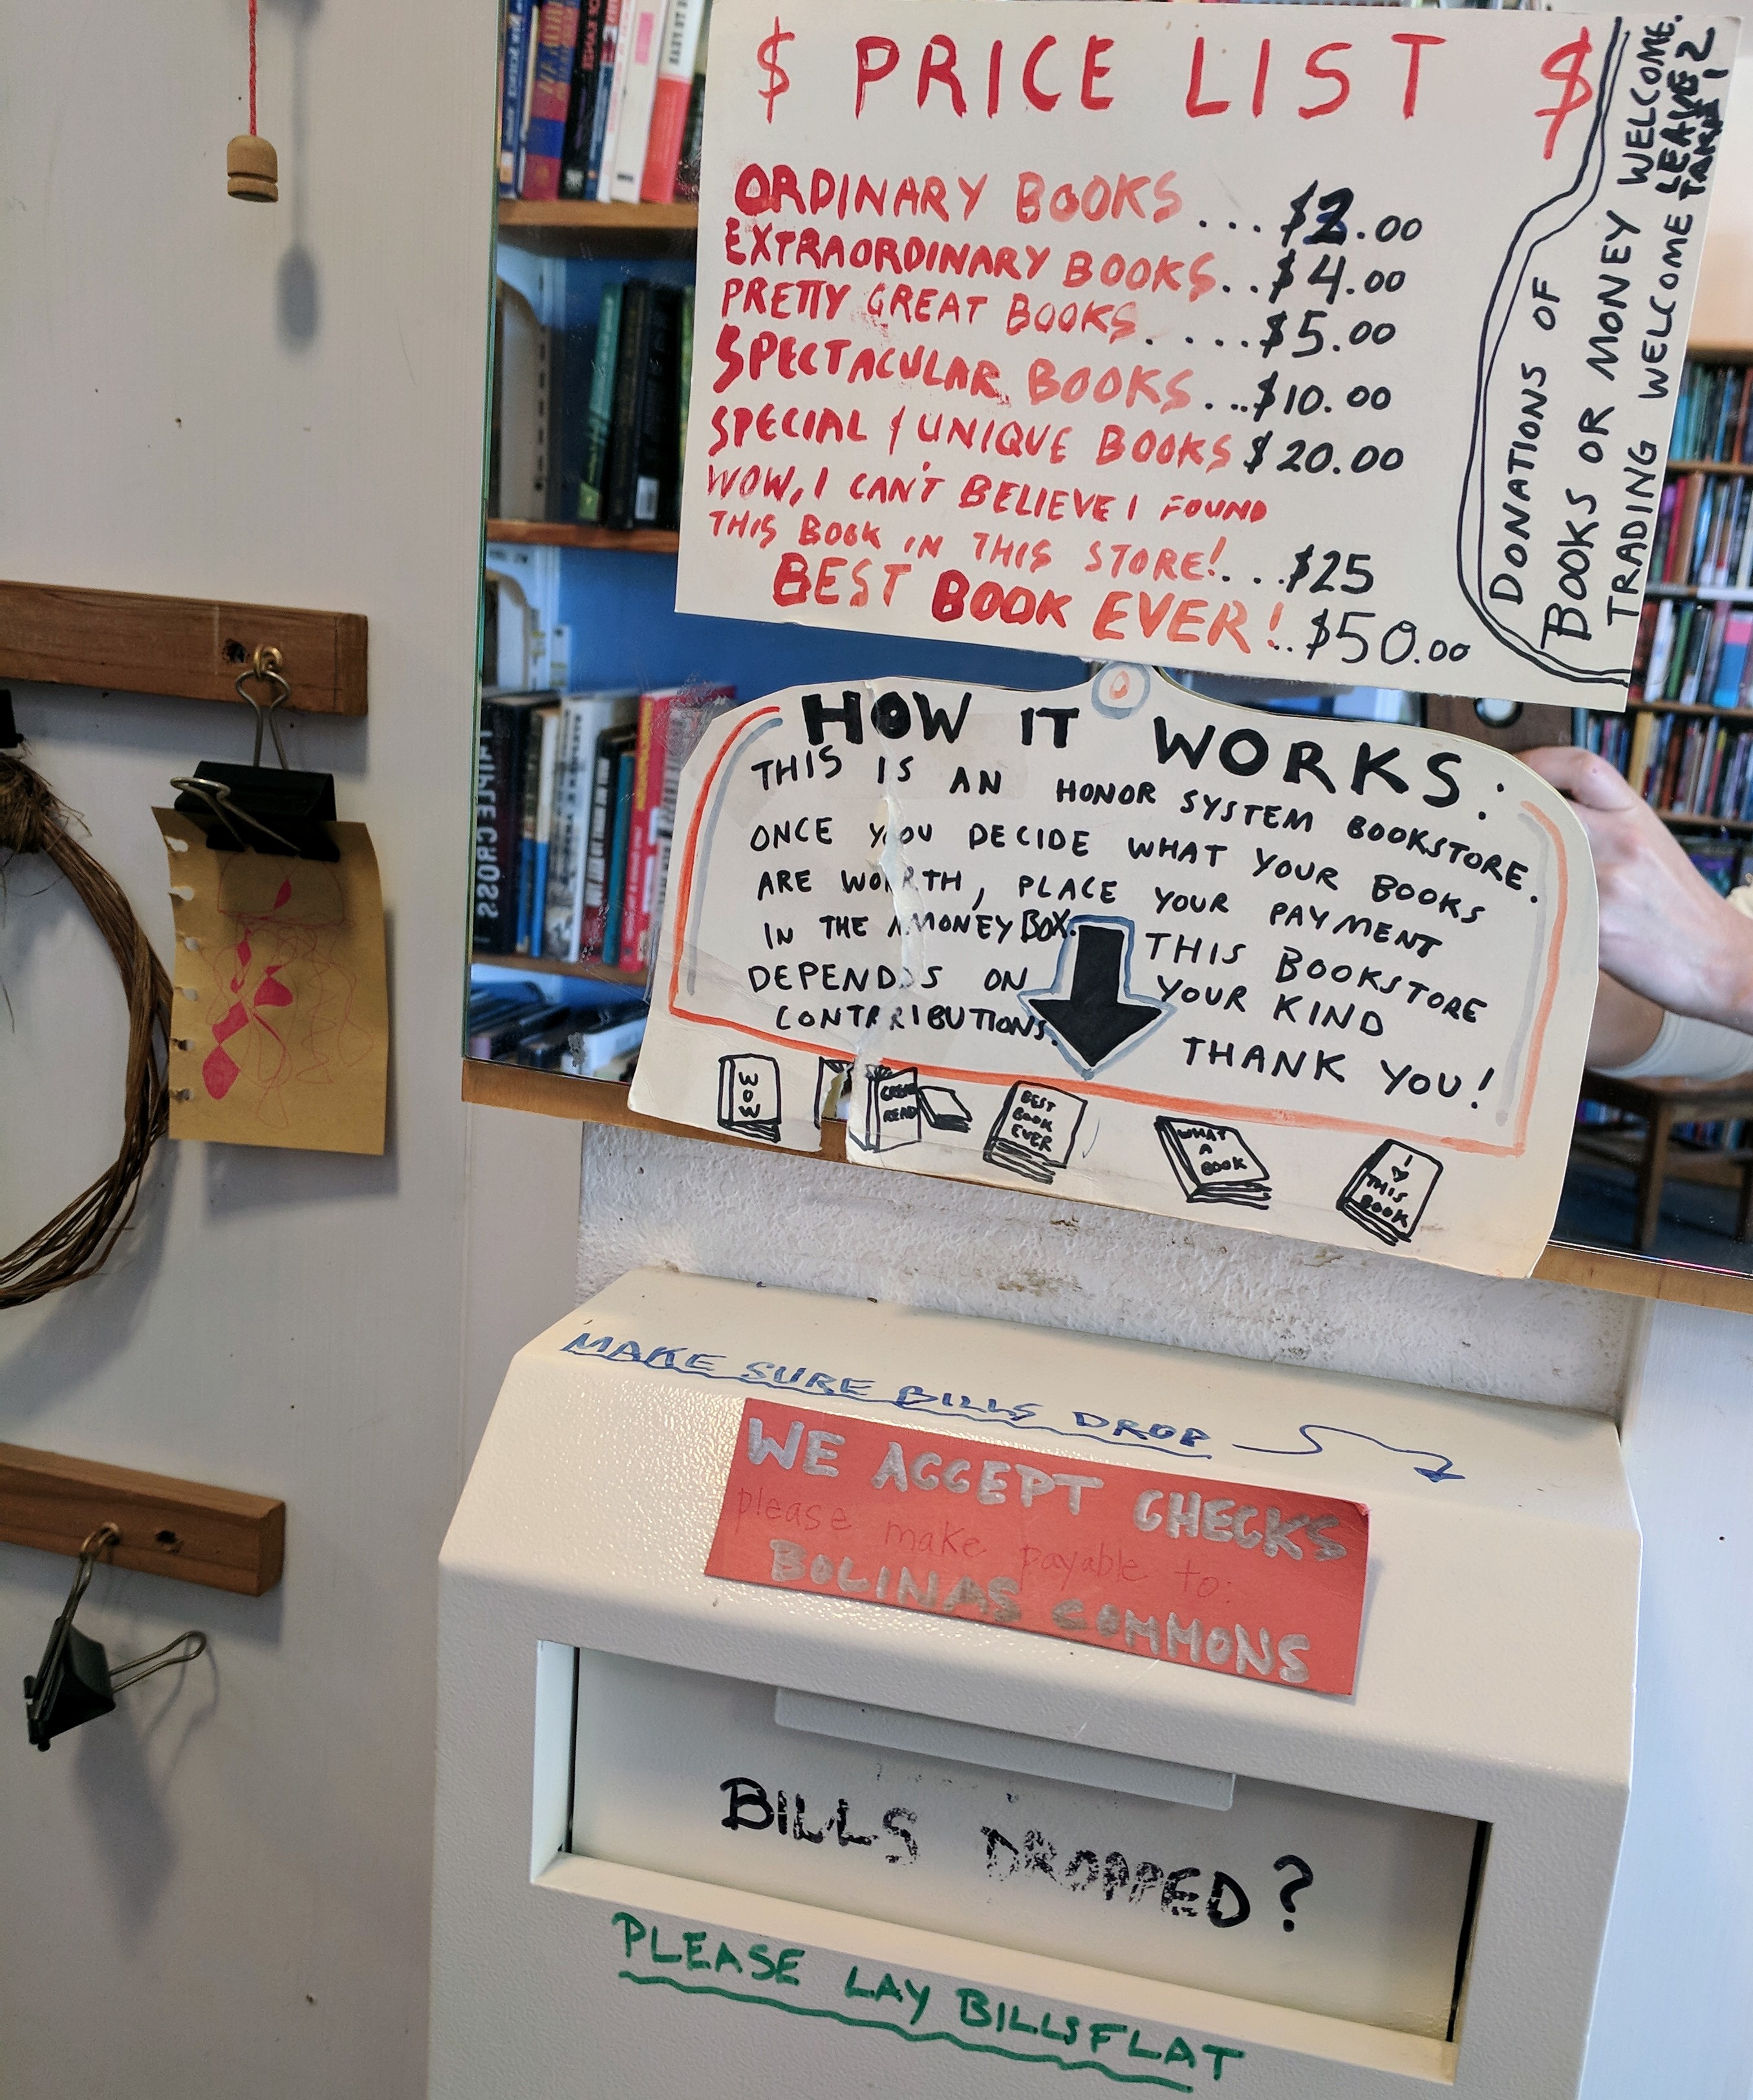 $ PRICE LIST $
ORDINARY BOOKS.... $2.00
EXTRAORDINARY BOOKS..$4.00
PRETTY GREAT BOOKS.....$5.00
SPECTACULAR BOOKS...$10.00
SPECIAL & UNIQUE BOOKS $20.00
WOW, I CAN'T BELIEVE I FOUND
THIS BOOK IN THIS STORE!...$25
BEST BOOK EVER!..$50.00
DONATIONS OF
BOOKS OR MONEY WELCOME.
TRADING WELCOME LEAVE 2
TAKE 1
HOW IT WORKS:
THIS IS AN HONOR SYSTEM BOOKSTORE.
ONCE YOU DECIDE WHAT YOUR BOOKS
ARE WORTH, PLACE YOUR PAYMENT
IN THE MONEY BOX. THIS BOOKSTORE
DEPENDS ON YOUR KIND
CONTRIBUTIONS. THANK YOU!
WOW
GREAT
READ
BEST
BOOK
EVER
WHAT
A
BOOK
I
♥
THIS
BOOK
TRIPLE CROSS
MAKE SURE BILLS DROP
WE ACCEPT CHECKS
please make payable to:
BOLINAS COMMONS
BILLS DROPPED?
PLEASE LAY BILLS FLAT